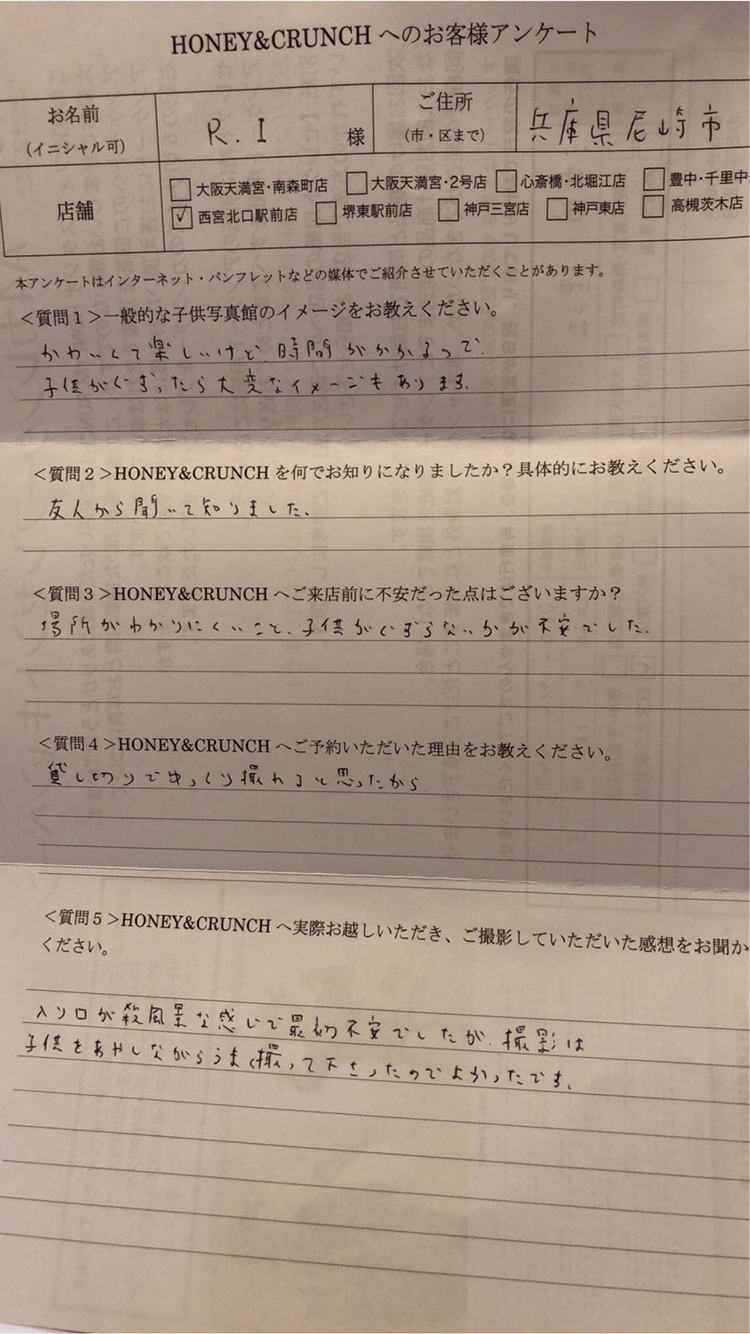 HONEY&CRUNCH へのお客様アンケート
お名前
(イニシャル可)
R.I 様
ご住所
(市・区まで)
兵庫県尼崎市
店舗
□ 大阪天満宮・南森町店 □ 大阪天満宮・2号店 □ 心斎橋・北堀江店 □ 豊中・千里中
☑ 西宮北口駅前店 □ 堺東駅前店 □ 神戸三宮店 □ 神戸東店 □ 高槻茨木店
本アンケートはインターネット・パンフレットなどの媒体でご紹介させていただくことがあります。
<質問1>一般的な子供写真館のイメージをお教えください。
かわいくて楽しいけど時間がかかるので
子供がぐずったら大変なイメージもあります。
<質問2>HONEY&CRUNCH を何でお知りになりましたか?具体的にお教えください。
友人から聞いて知りました。
<質問3>HONEY&CRUNCH へご来店前に不安だった点はございますか?
場所がわかりにくいこと、子供がぐずらないかが不安でした。
<質問4>HONEY&CRUNCH へご予約いただいた理由をお教えください。
貸し切りでゆっくり撮れると思ったから
<質問5>HONEY&CRUNCH へ実際お越しいただき、ご撮影していただいた感想をお聞か
ください。
入り口が殺風景な感じで最初不安でしたが、撮影は
子供をあやしながらうまく撮って下さったのでよかったです。